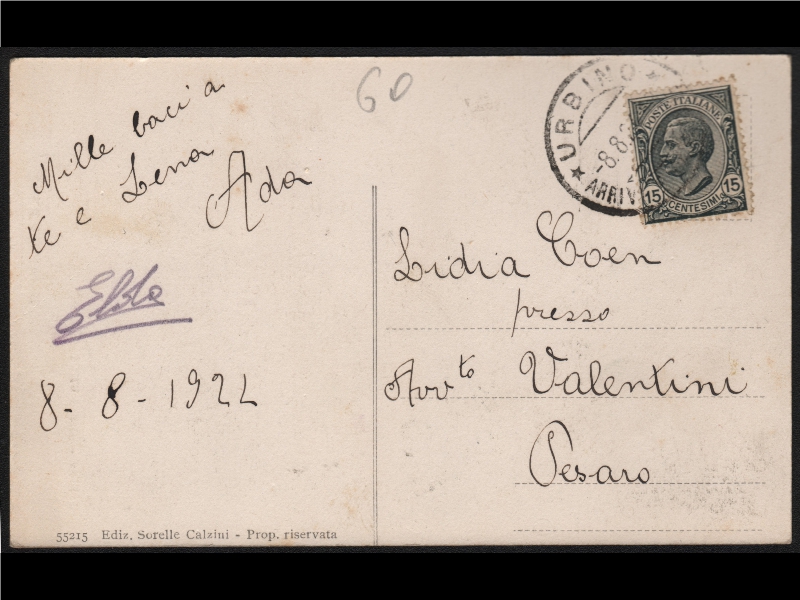 60
Mille baci a
te e Lena
Ada
8 - 8 - 1922
55215 Ediz. Sorelle Calzini - Prop. riservata
URBINO
-8.8.
ARRIV
POSTE ITALIANE
15 15
CENTESIMI
Lidia Coen
presso
Avv.to Valentini
Pesaro